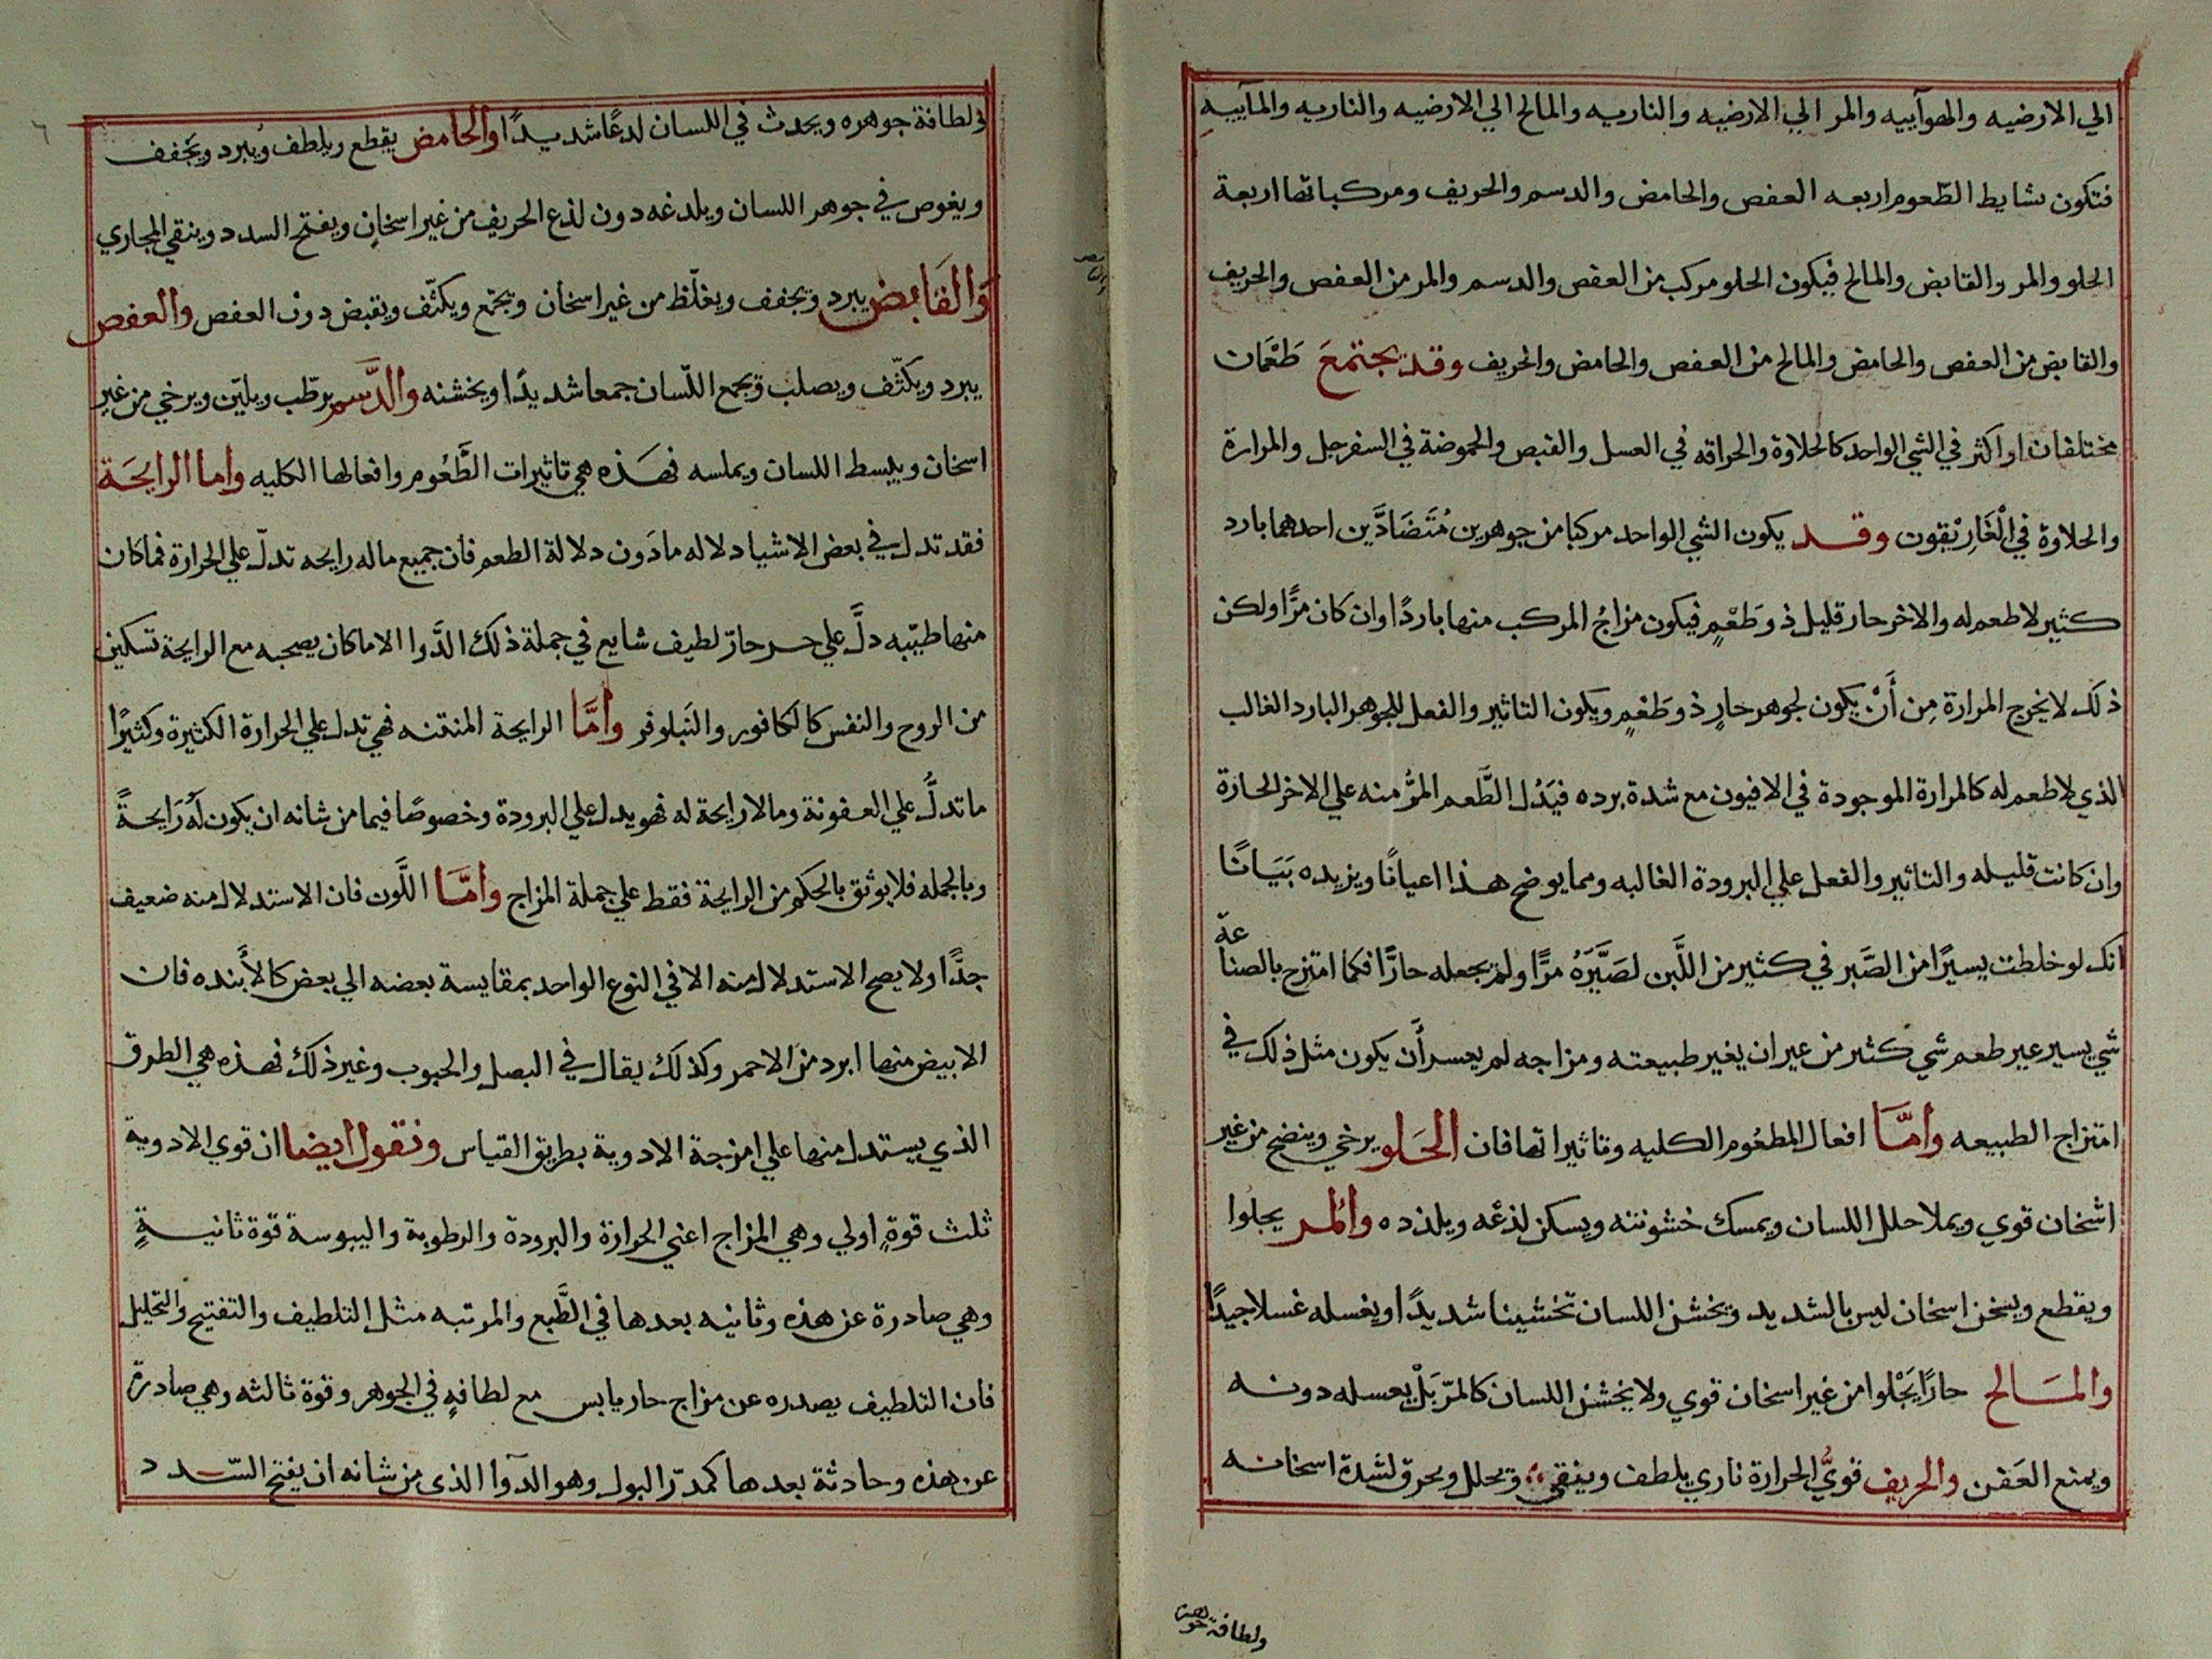 الي الارضيه والهوآييه والمر الي الارضيه والناريه والمالح الي الارضيه والناريه والمآييه
فتكون بسايط الطّعوم اربعه العفص والحامض والدسم والحريف ومركباتها اربعة
الحلو والمر والقابض والمالح فيكون الحلو مركب من العفص والدسم والمر من العفص والحريف
والقابض من العفص والحامض والمالح من العفص والحامض والحريف وقد يجتمعَ طَعْمَان
مختلفان او اكثر في الشي الواحد كالحلاوة والحراقه في العسل والقبض والحموضة في السفرجل والمرارة
والحلاوة في الْغَارِيْقون وقد يكون الشي الواحد مركبا من جوهرين مُتَضَادَّين احدهما بارد
كثير لا طعم له والاخر حار قليل ذو طَعْمٍ فيكون مزاجُ المركب منها باردًا وان كان مرًّا ولكن
ذلَك لا يخرج المرارة مِن أَنْ يكون لجوهر حارٍ ذو طَعْمٍ ويكون التاثير والفعل للجوهر البارد الغالب
الذي لا طعم له كالمرارة الموجودة في الافيون مع شدة برده فيَدُل الطَّعم المرُّ منه علي الاخر الحارة
وان كانت قليله والتاثير والفعل علي البرودة الغالبه ومما يوضح هذا اعيانًا ويزيده بَيَانًا
انك لو خلطت يسيرًا من الصَّبر في كثير من اللَّبن لصَيَّرَهُ مرًّا ولم يجعله حارًّا فكما امتزج بالصناعة
شي يسير غير طعم شي كثير من غير ان يغير طبيعته ومزاجه لم يعسر أَن يكون مثل ذلك في
امتزاج الطبيعه وامَّا افعال المطعُوم الكليه وتاثيراتها فان الحَلو يرخي وينضج من غير
اسْخان قوي ويملا خلل اللسان ويمسك خشونته ويسكن لذعَه ويلذذه والمر يجلوا
ويقطع ويسخن اسخان ليس بالشديد ويخشن اللسان تخشينا شديدًا ويغسله غسلا جيدًا
والمسَالح حارًا يَجْلوا من غير اسخان قوي ولا يخشن اللسان كالمرّ بَلْ يغسله دونه
ويمنع العَفن والحريف قويُّ الحرارة ناري يلطف وينقي ويحلل ويحرق لشدة اسخانه
ولطافة جوهره
ولطافة جوهره ويحدث في اللسان لدعًا شديدًا والحامض يقطع ويلطف ويُبرد ويجَفف
ويغوص في جوهر اللسان ويلدغه دون لذع الحريف من غير اسخانٍ ويفتح السدد وينقي المجاري
وَالقَابض يبرد ويجفف ويغلّظ من غير اسخان ويجمّع ويكثّف ويقبض دون العفص والعفص
يبرد ويكثّف ويصلب ويجمع اللّسان جمعا شديدًا ويخشنه والدَّسم يرطّب ويليّن ويرخي من غير
اسخان ويبسط اللسان ويملسه فهَذه هي تاثيرات الطَّعُوم وافعالها الكليه واما الرايحَة
فقد تدل في بعض الاشيا دلاله ما دَون دلالة الطعم فان جميع ماله رايحه تدلّ علي الحرارة فما كان
منها طيّبه دلَّ علي حر حارّ لطيف شايع في جملة ذلك الدَّوا الا ما كان يصحبه مع الرايحة تسكين
من الروح والنفس كالكافور والنَيلوفر وامَّا الرايحة المنتنه فهي تدل علي الحرارة الكثيرة وكثيرًا
ما تدلُّ علي العفونة وما لا رايحة له فهو يدل علي البرودة وخصوصًا فيما من شانه ان يكون لَهُ رَايحةً
وبالجمله فلا يوثق بالحكم من الرايحة فقط علي جملة المزاج وامَّا اللَّون فان الاستدلال منه ضعيف
جدًّا ولا يصح الاستدلال منه الا في النوع الواحد بمقايسة بعضه الي بعض كالأَبنده فان
الابيض منها ابرد من الاحمر وكذلك يقال في البصل والحبوب وغير ذلك فهذه هي الطرق
الذي يستدل منها علي امزجة الادوية بطريق القياس ونقول ايضا ان قوي الادوية
ثلث قوةٍ اولي وهي المزاج اعني الحرارة والبرودة والرطوبة واليبوسة قوة ثانيةٍ
وهي صادرة عن هذه وثانيه بعدها في الطَّبع والمرتبه مثل التلطيف والتفتيح والتحليل
فان التلطيف يصدره عن مزاج حار يابس مع لطافهٍ في الجوهر وقوة ثالثه وهي صادرة
عن هذه وحادثة بعدها كمدرّ البول وهو الدّوا الذي من شانه ان يفتح السّدد